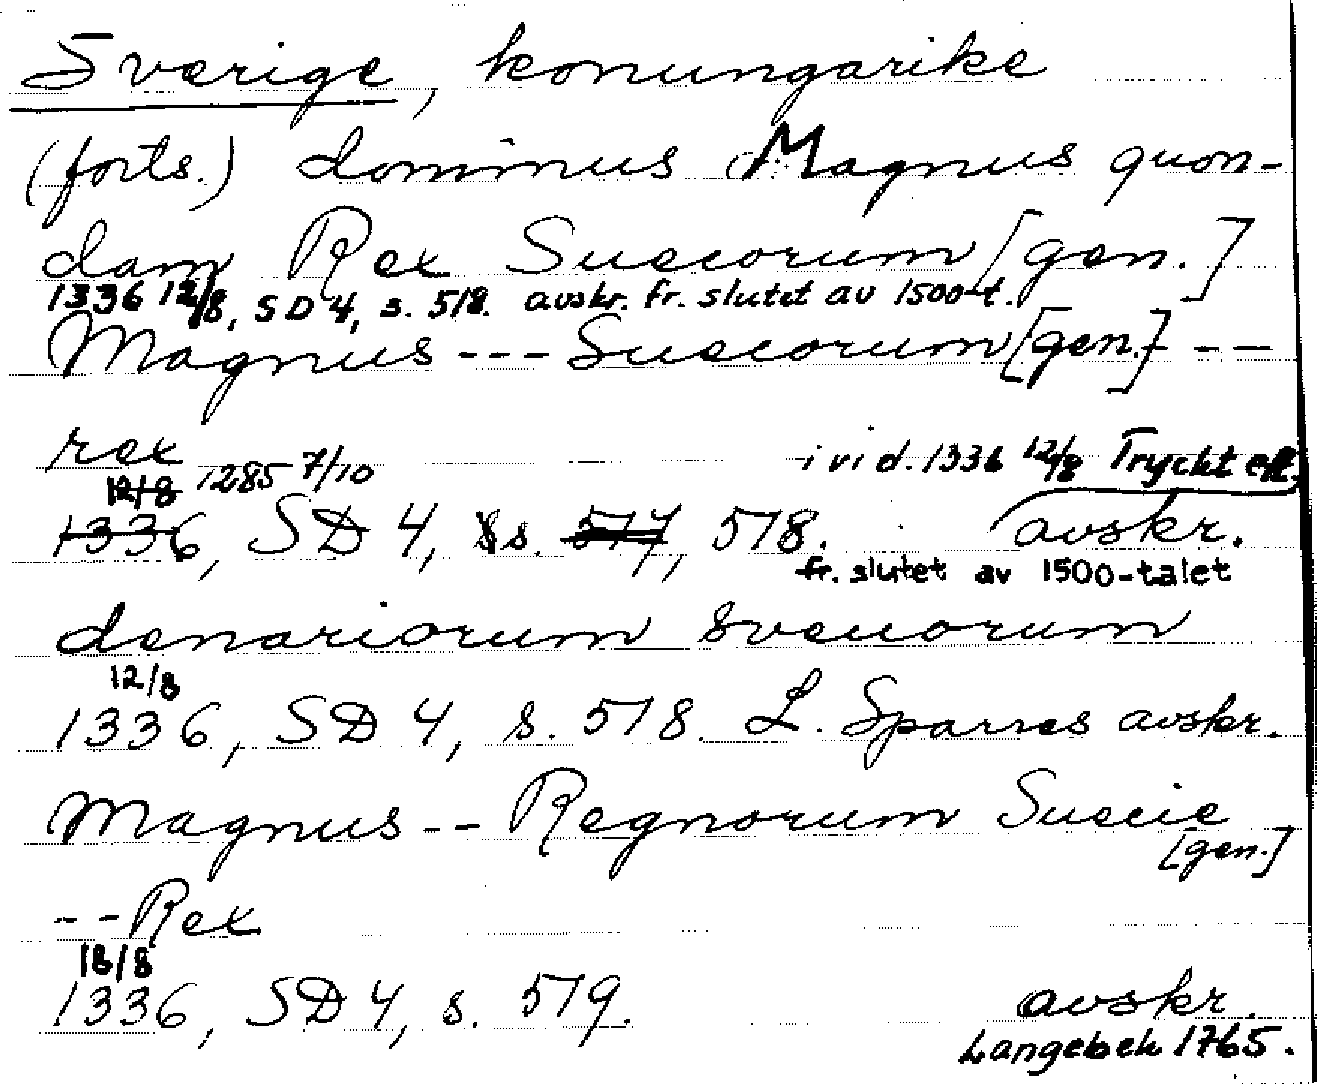 Sverige, konungarike
(forts.) dominus Magnus quon-
dam Rex Suecorum [gen.]
1336 12/8, SD 4, s. 518. avskr. fr. slutet av 1500-t.
Magnus --- Suecorum [gen.] ---
rex
1285 7/10 i vid. 1336 12/8 Tryckt eft.
12/8
1336, SD 4, s. 517, 518. avskr.
fr. slutet av 1500-talet
denariorum svenorum
12/8
1336, SD 4, s. 518. L. Sparres avskr.
Magnus -- Regnorum Suecie
[gen.]
-- Rex
18/8
1336, SD 4, s. 579.
avskr.
Langebek 1765.